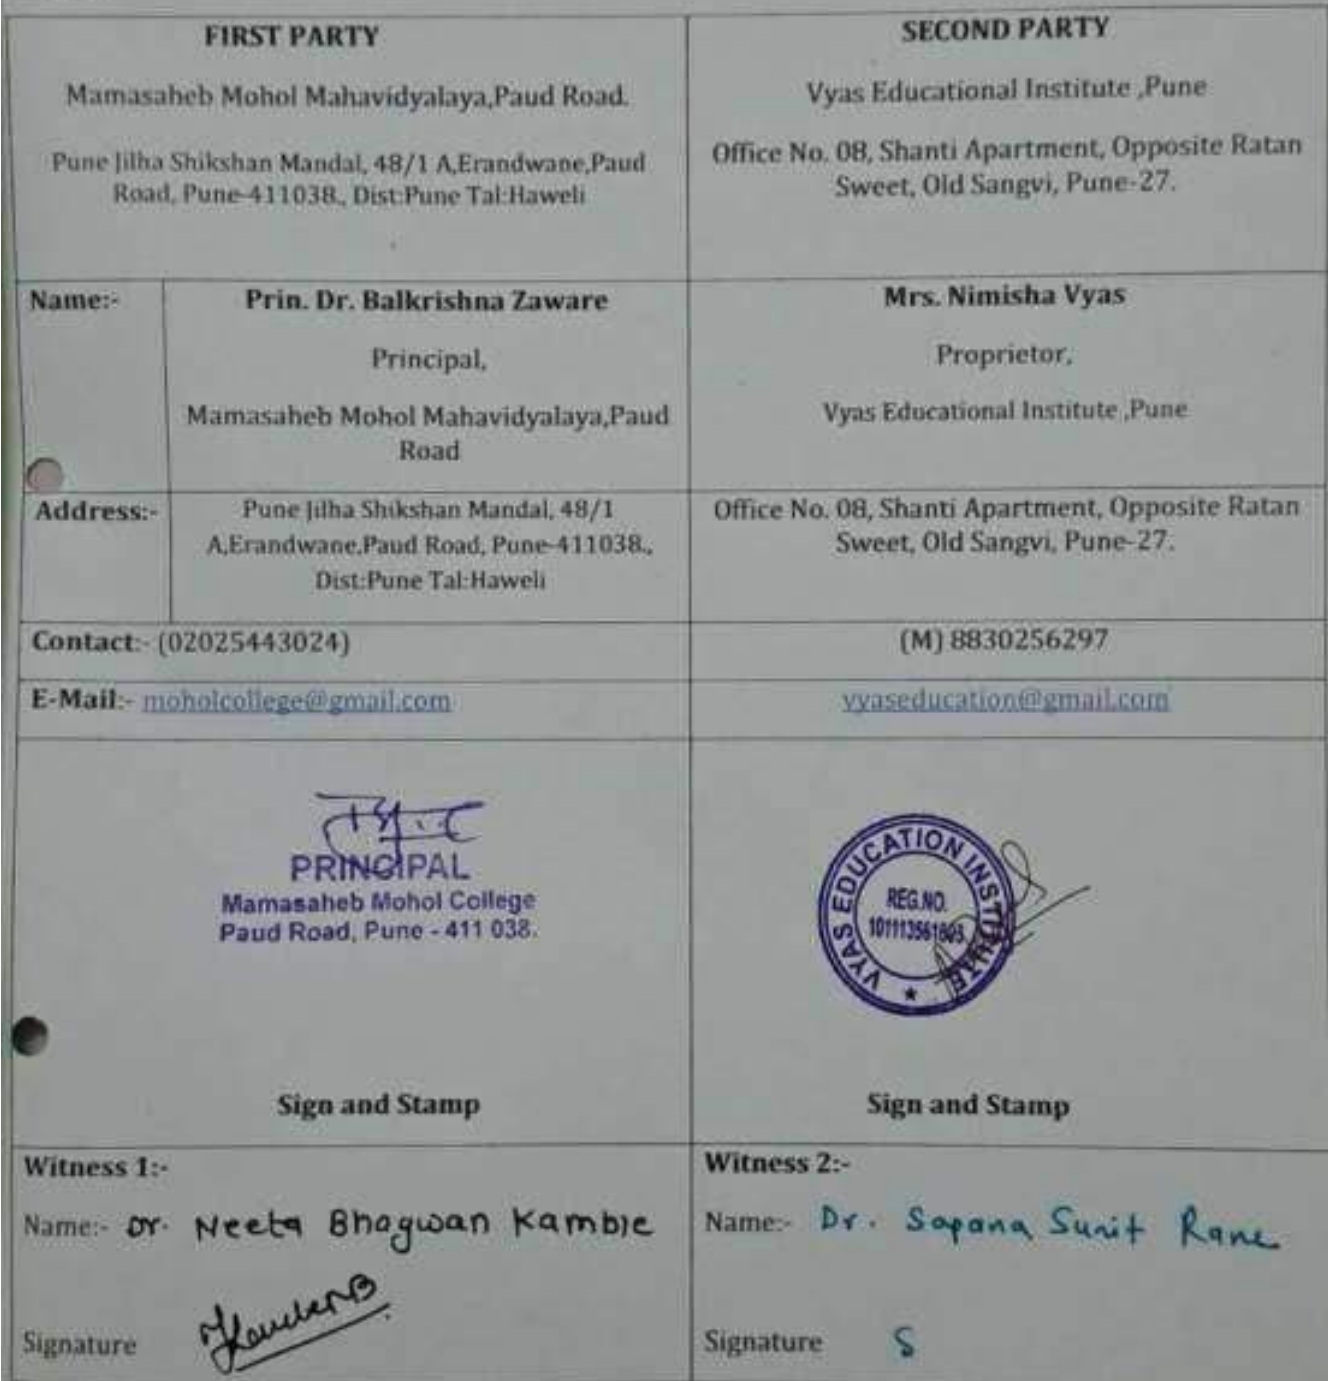 FIRST PARTY
Mamasaheb Mohol Mahavidyalaya,Paud Road.
Pune Jilha Shikshan Mandal, 48/1 A,Erandwane,Paud
Road, Pune-411038., Dist:Pune Tal:Haweli
SECOND PARTY
Vyas Educational Institute ,Pune
Office No. 08, Shanti Apartment, Opposite Ratan
Sweet, Old Sangvi, Pune-27.
Name:-
Prin. Dr. Balkrishna Zaware
Principal,
Mamasaheb Mohol Mahavidyalaya,Paud
Road
Mrs. Nimisha Vyas
Proprietor,
Vyas Educational Institute ,Pune
Address:-
Pune Jilha Shikshan Mandal, 48/1
A,Erandwane,Paud Road, Pune-411038.,
Dist:Pune Tal:Haweli
Office No. 08, Shanti Apartment, Opposite Ratan
Sweet, Old Sangvi, Pune-27.
Contact:- (02025443024)
(M) 8830256297
E-Mail:- moholcollege@gmail.com
vyaseducation@gmail.com
PRINCIPAL
Mamasaheb Mohol College
Paud Road, Pune - 411 038.
Sign and Stamp
VYAS EDUCATION INSTITUTE
REG.NO.
Sign and Stamp
Witness 1:-
Name:- Dr. Neeta Bhagwan Kamble
Signature
Witness 2:-
Name:- Dr. Sapana Sunit Rane
Signature S